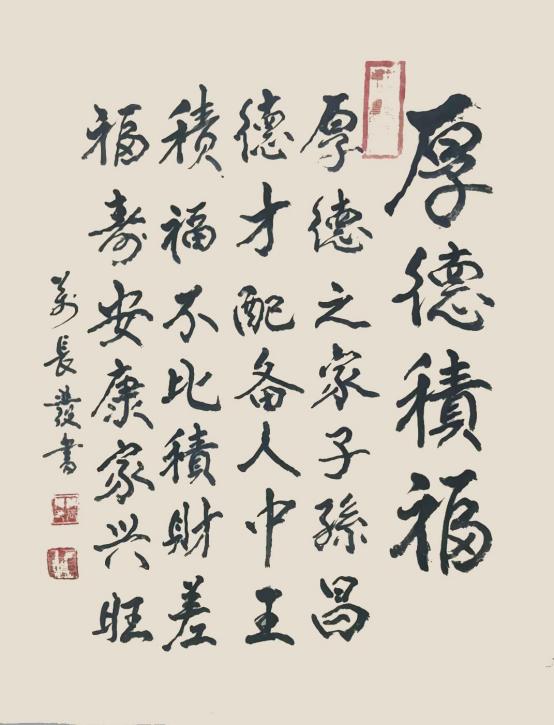 厚德積福
厚德之家子孫昌
德才配备人中王
積福不比積財差
福壽安康家兴旺
万長發書